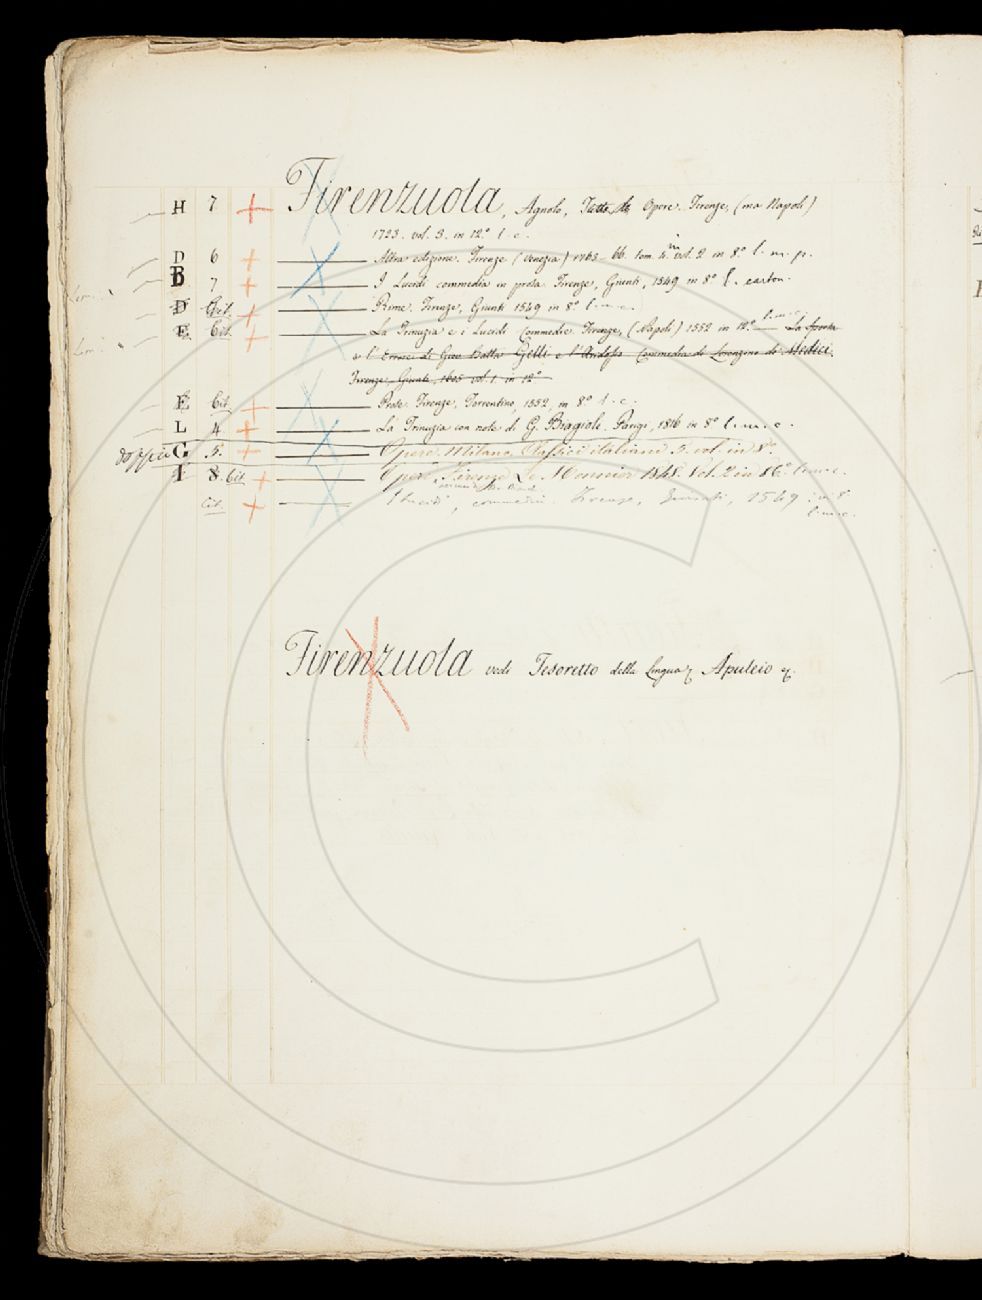 H 7 + Firenzuola, Agnolo, Tutte le Opere. Firenze, (ma Napoli)
1723. vol. 3. in 12.º l. c.
D 6 + Altra edizione. Firenze (Venezia) 1763-66. tom. 4. in vol. 2 in 8º l. m. p.
B 7 + I Lucidi commedia in prosa. Firenze, Giunti, 1549 in 8º l. carton.
D Cit. + Rime. Firenze, Giunti 1549 in 8º l. m. c.
E Cit. + La Trinuzia e i Lucidi Commedie Firenze, (Napoli) 1552 in 12.º l. m. c. La Sporta
e l'Errore di Giov. Batta Gelli e l'Aridosio Commedia di Lorenzino de Medici.
Firenze, Giunti, 1605 vol. 1. in 12º
E Cit. + Prose. Firenze, Torrentino, 1552, in 8º l. c.
L 4 + La Trinuzia con note di G. Biagioli. Parigi, 1816 in 8º l. m. c.
doppio G 5. + Opere. Milano. Classici italiani 5. vol. in 8º.
I 8. Cit. + Opere. Firenze Le Monnier 1848. Vol. 2 in 16º l. m. c.
Cit. + I lucidi, commedia. Firenze, Giunti, 1549, in 8º
l. m. c.
Firenzuola vedi Tesoretto della Lingua, Apuleio